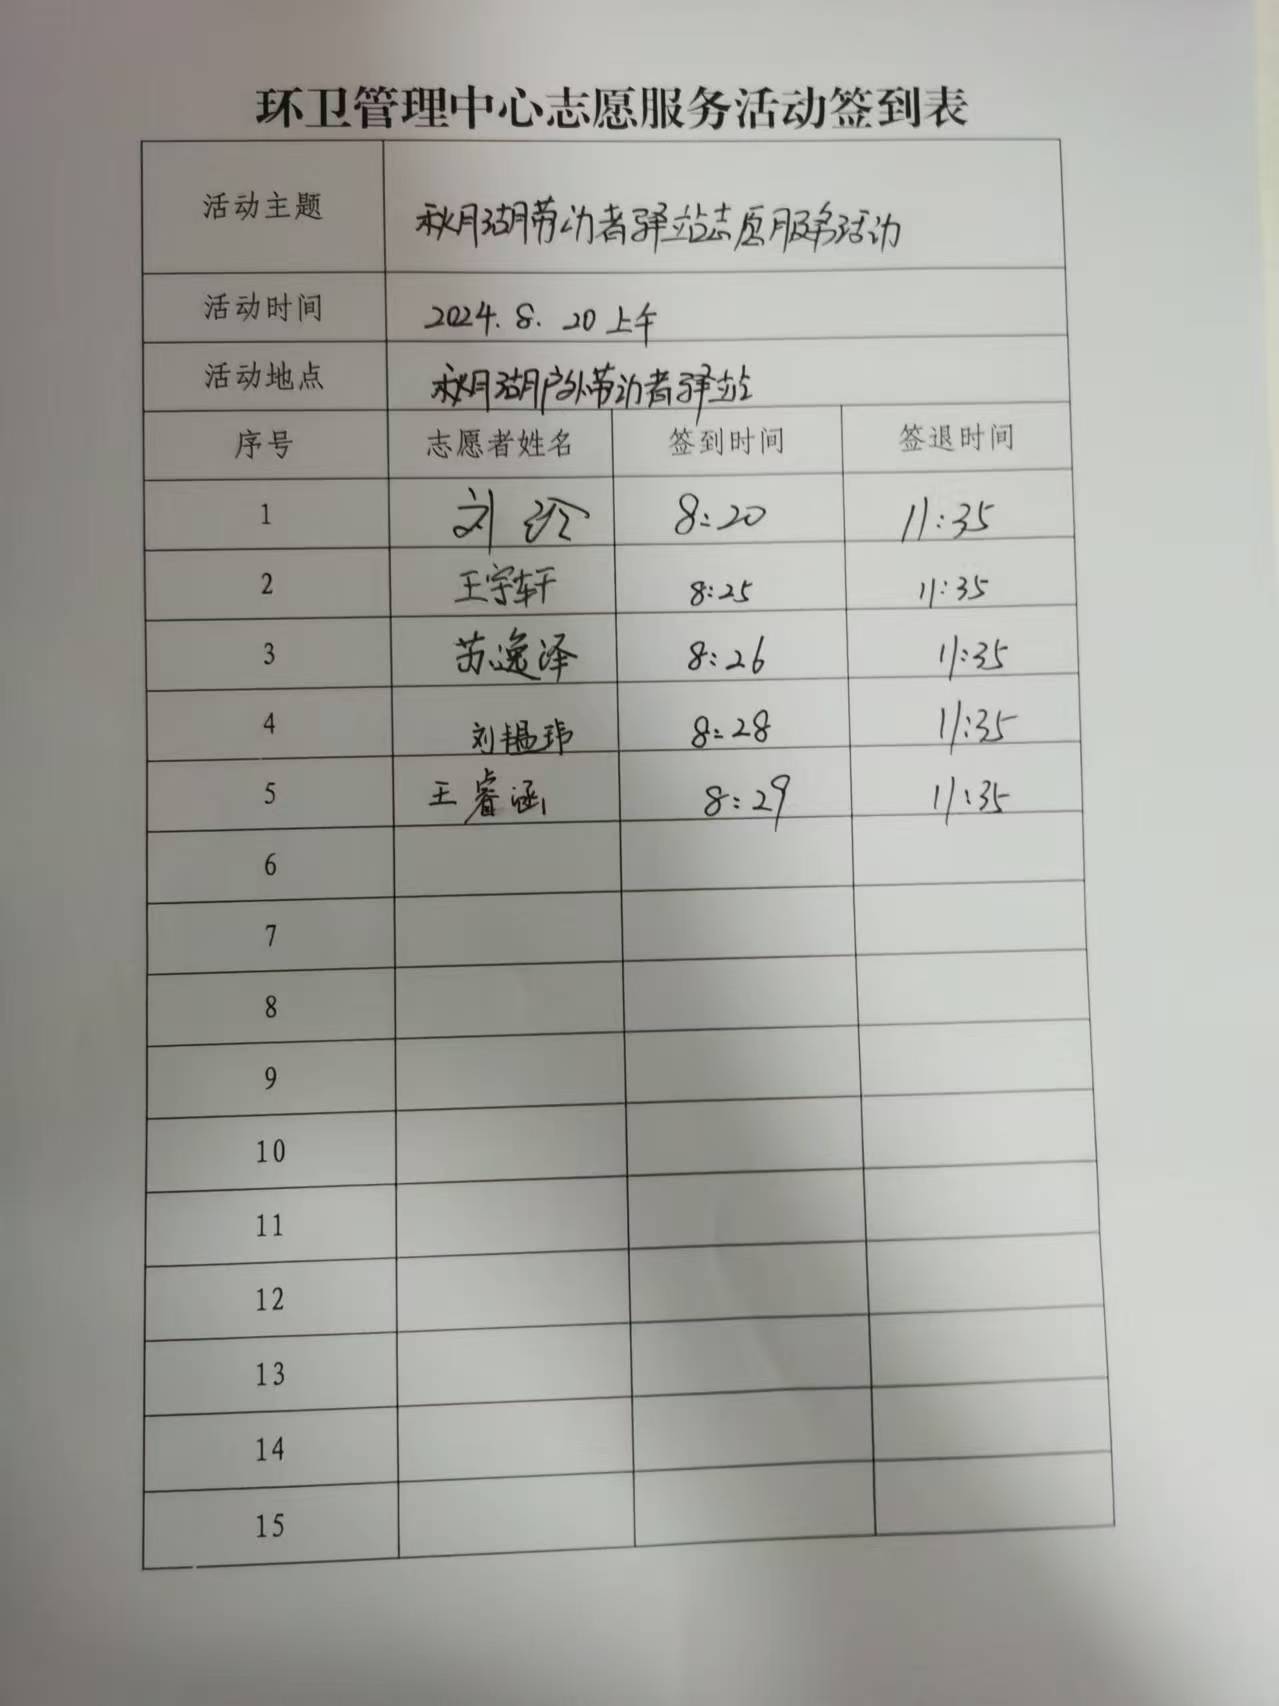 环卫管理中心志愿服务活动签到表
活动主题 秋月湖劳动者驿站志愿服务活动
活动时间 2024.8.20上午
活动地点 秋月湖户外劳动者驿站
序号 志愿者姓名 签到时间 签退时间
1 刘 8:20 11:35
2 王宇轩 8:25 11:35
3 苏逸泽 8:26 11:35
4 刘韫玮 8:28 11:35
5 王睿涵 8:29 11:35
6
7
8
9
10
11
12
13
14
15